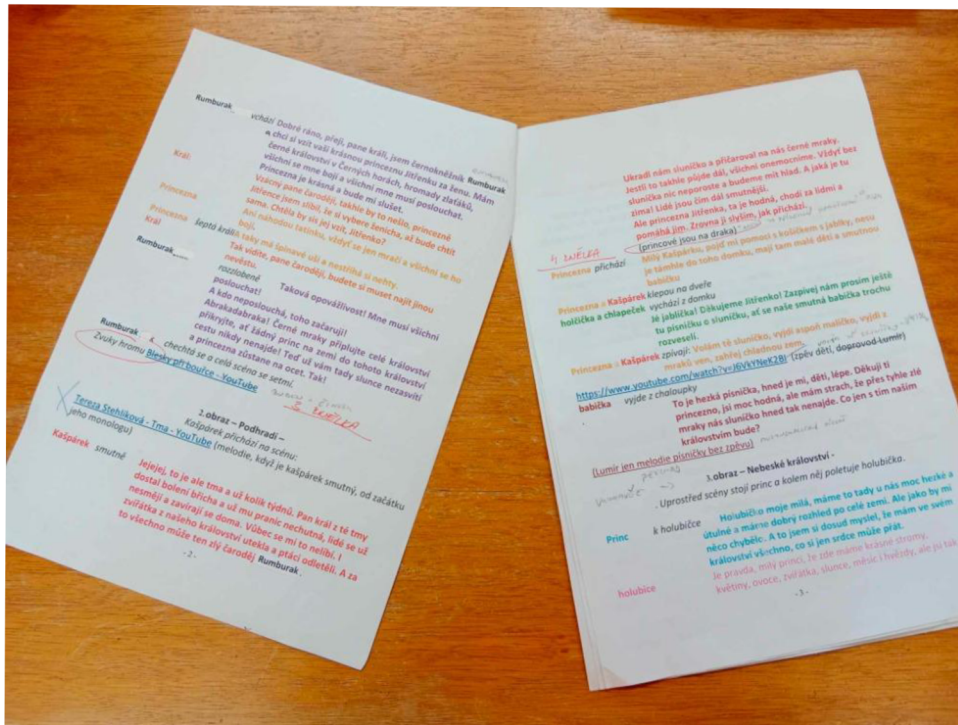 Rumburak vchází Dobré ráno, přeji, pane králi, jsem černokněžník Rumburak
a chci si vzít vaši krásnou princeznu Jitřenku za ženu. Mám
černé království v Černých horách, hromady zlaťáků,
všichni se mne bojí a všichni mne musí poslouchat.
Princezna je krásná a bude mi slušet.
Král: Vzácný pane čaroději, takhle by to nešlo, princezně
Jitřence jsem slíbil, že si vybere ženicha, až bude chtít
sama. Chtěla by sis jej vzít, Jitřenko?
Princezna Ani náhodou tatínku, vždyť se jen mračí a všichni se ho
bojí,
Princezna šeptá králi a taky má špinavé uši a nestříhá si nehty.
Král Tak vidíte, pane čaroději, budete si muset najít jinou
nevěstu.
Rumburak rozzlobeně Taková opovážlivost! Mne musí všichni
poslouchat!
A kdo neposlouchá, toho začaruji!
Abrakadabraka! Černé mraky připlujte celé království
přikryjte, ať žádný princ na zemi do tohoto království
cestu nikdy nenajde! Teď už vám tady slunce nezasvítí
a princezna zůstane na ocet. Tak!
Rumburak chechtá se a celá scéna se setmí.
Zvuky hromu Blesky při bouřce - YouTube
2.obraz – Podhradí –
Kašpárek přichází na scénu:
Tereza Stehlíková - Tma - YouTube (melodie, když je kašpárek smutný, od začátku
jeho monologu)
Kašpárek smutně Jejejej, to je ale tma a už kolik týdnů. Pan král z té tmy
dostal bolení břicha a už mu pranic nechutná, lidé se už
nesmějí a zavírají se doma. Vůbec se mi to nelíbí. I
zvířátka z našeho království utekla a ptáci odletěli. A za
to všechno může ten zlý čaroděj Rumburak.
- 2 -
Ukradl nám sluníčko a přičaroval na nás černé mraky.
Jestli to takhle půjde dál, všichni onemocníme. Vždyť bez
sluníčka nic neporoste a budeme mít hlad. A jaká je tu
zima! Lidé jsou čím dál smutnější.
Ale princezna Jitřenka, ta je hodná, chodí za lidmi a
pomáhá jim. Zrovna ji slyším, jak přichází.
(princové jsou na draka)
ZNĚLKA
Princezna přichází Milý Kašpárku, pojď mi pomoci s košíčkem s jablky, nesu
je támhle do toho domku, mají tam malé děti a smutnou
babičku
Princezna a Kašpárek klepou na dveře
holčička a chlapeček vychází z domku
Jé jablíčka! Děkujeme Jitřenko! Zazpívej nám prosím ještě
tu písničku o sluníčku, ať se naše smutná babička trochu
rozveselí.
Princezna a Kašpárek zpívají: Volám tě sluníčko, vyjdi aspoň maličko, vyjdi z
mraků ven, zahřej chladnou zem.
https://www.youtube.com/watch?v=J6VkYNeK2BI (zpěv dětí, doprovod Lumír)
babička vyjde z chaloupky
To je hezká písnička, hned je mi, děti, lépe. Děkuji ti
princezno, jsi moc hodná, ale mám strach, že přes tyhle zlé
mraky nás sluníčko hned tak nenajde. Co jen s tím naším
královstvím bude?
(Lumír jen melodie písničky bez zpěvu)
3.obraz – Nebeské království -
. Uprostřed scény stojí princ a kolem něj poletuje holubička.
Princ k holubičce Holubičko moje milá, máme to tady u nás moc hezké a
útulné a máme dobrý rozhled po celé zemi. Ale jako by mi
něco chybělo. A to jsem si dosud myslel, že mám ve svém
království všechno, co si jen srdce může přát.
holubice Je pravda, milý princi, že zde máme krásné stromy,
květiny, ovoce, zvířátka, slunce, měsíc i hvězdy, ale já tak
- 3 -